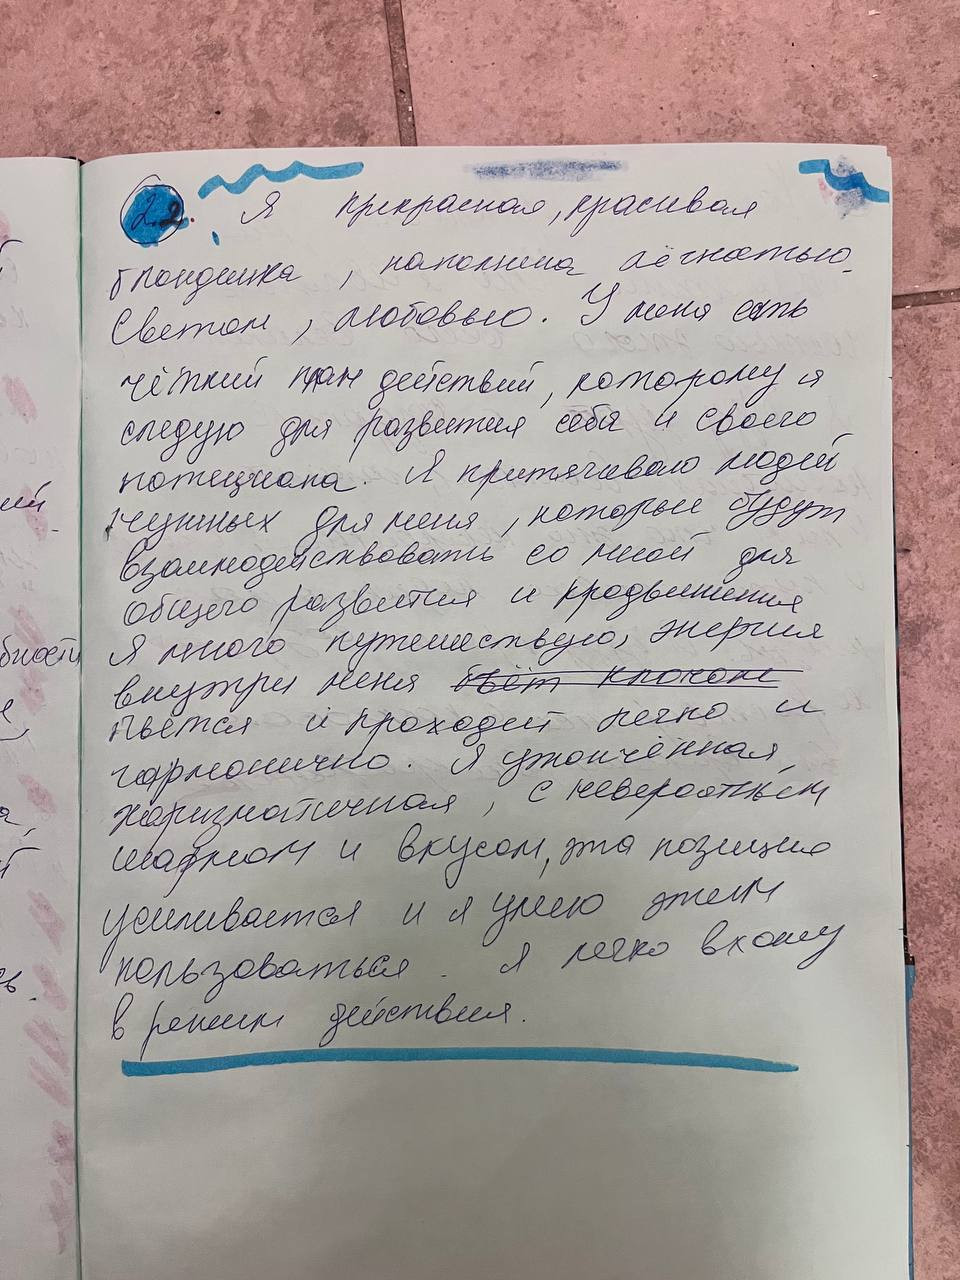 2.2. Я прекрасная, красивая
блондинка, наполнена лёгкостью,
светом, любовью. У меня есть
чёткий план действий, которому я
следую для развития себя и своего
потециала. Я притягиваю людей
нужных для меня, которые будут
взаимодействовать со мной для
общего развития и продвижения
Я много путешествую, энергия
внутри меня бьёт ключом
льётся и проходит легко и
гармонично. Я утончённая,
харизматичная, с невероятным
шармом и вкусом, эта позиция
усиливается и я умею этим
пользоваться. Я легко вхожу
в режим действия.
бности